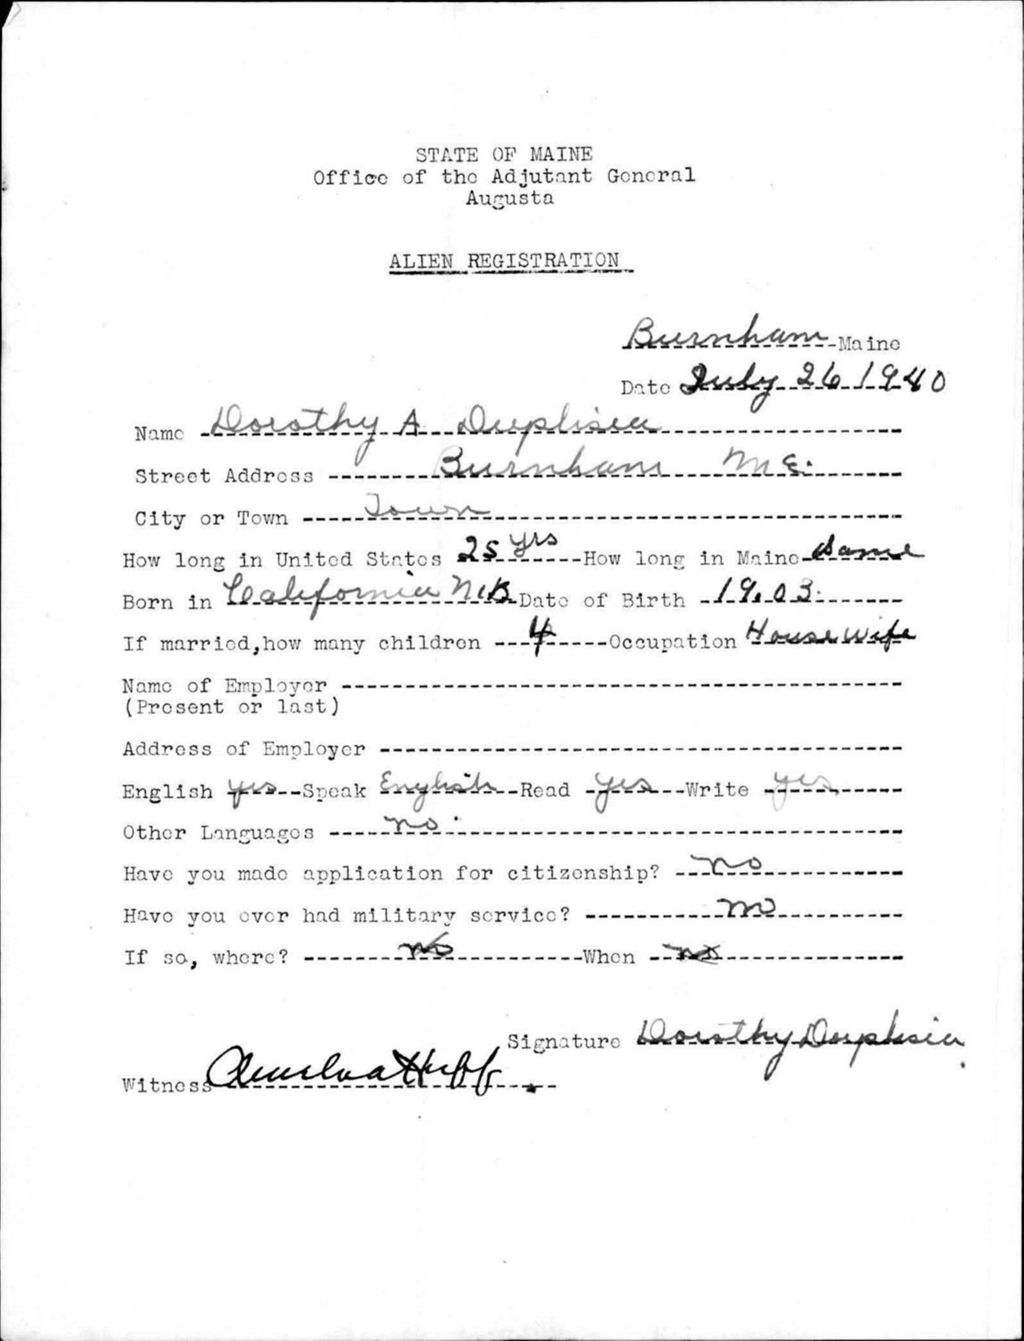 STATE OF MAINE
Office of the Adjutant General
Augusta
ALIEN REGISTRATION
Burnham Maine
Date July 26 1940
Name Dorothy A Duplisea
Street Address Burnham ME.
City or Town Town
How long in United States 25 yrs How long in Maine Same
Born in California N.B Date of Birth 1903.
If married, how many children 4 Occupation House Wife
Name of Employer
(Present or last)
Address of Employer
English yes Speak English Read yes Write yes
Other Languages no.
Have you made application for citizenship? no
Have you ever had military service? no
If so, where? no When no
Signature Dorothy Duplisia
Witness Huff